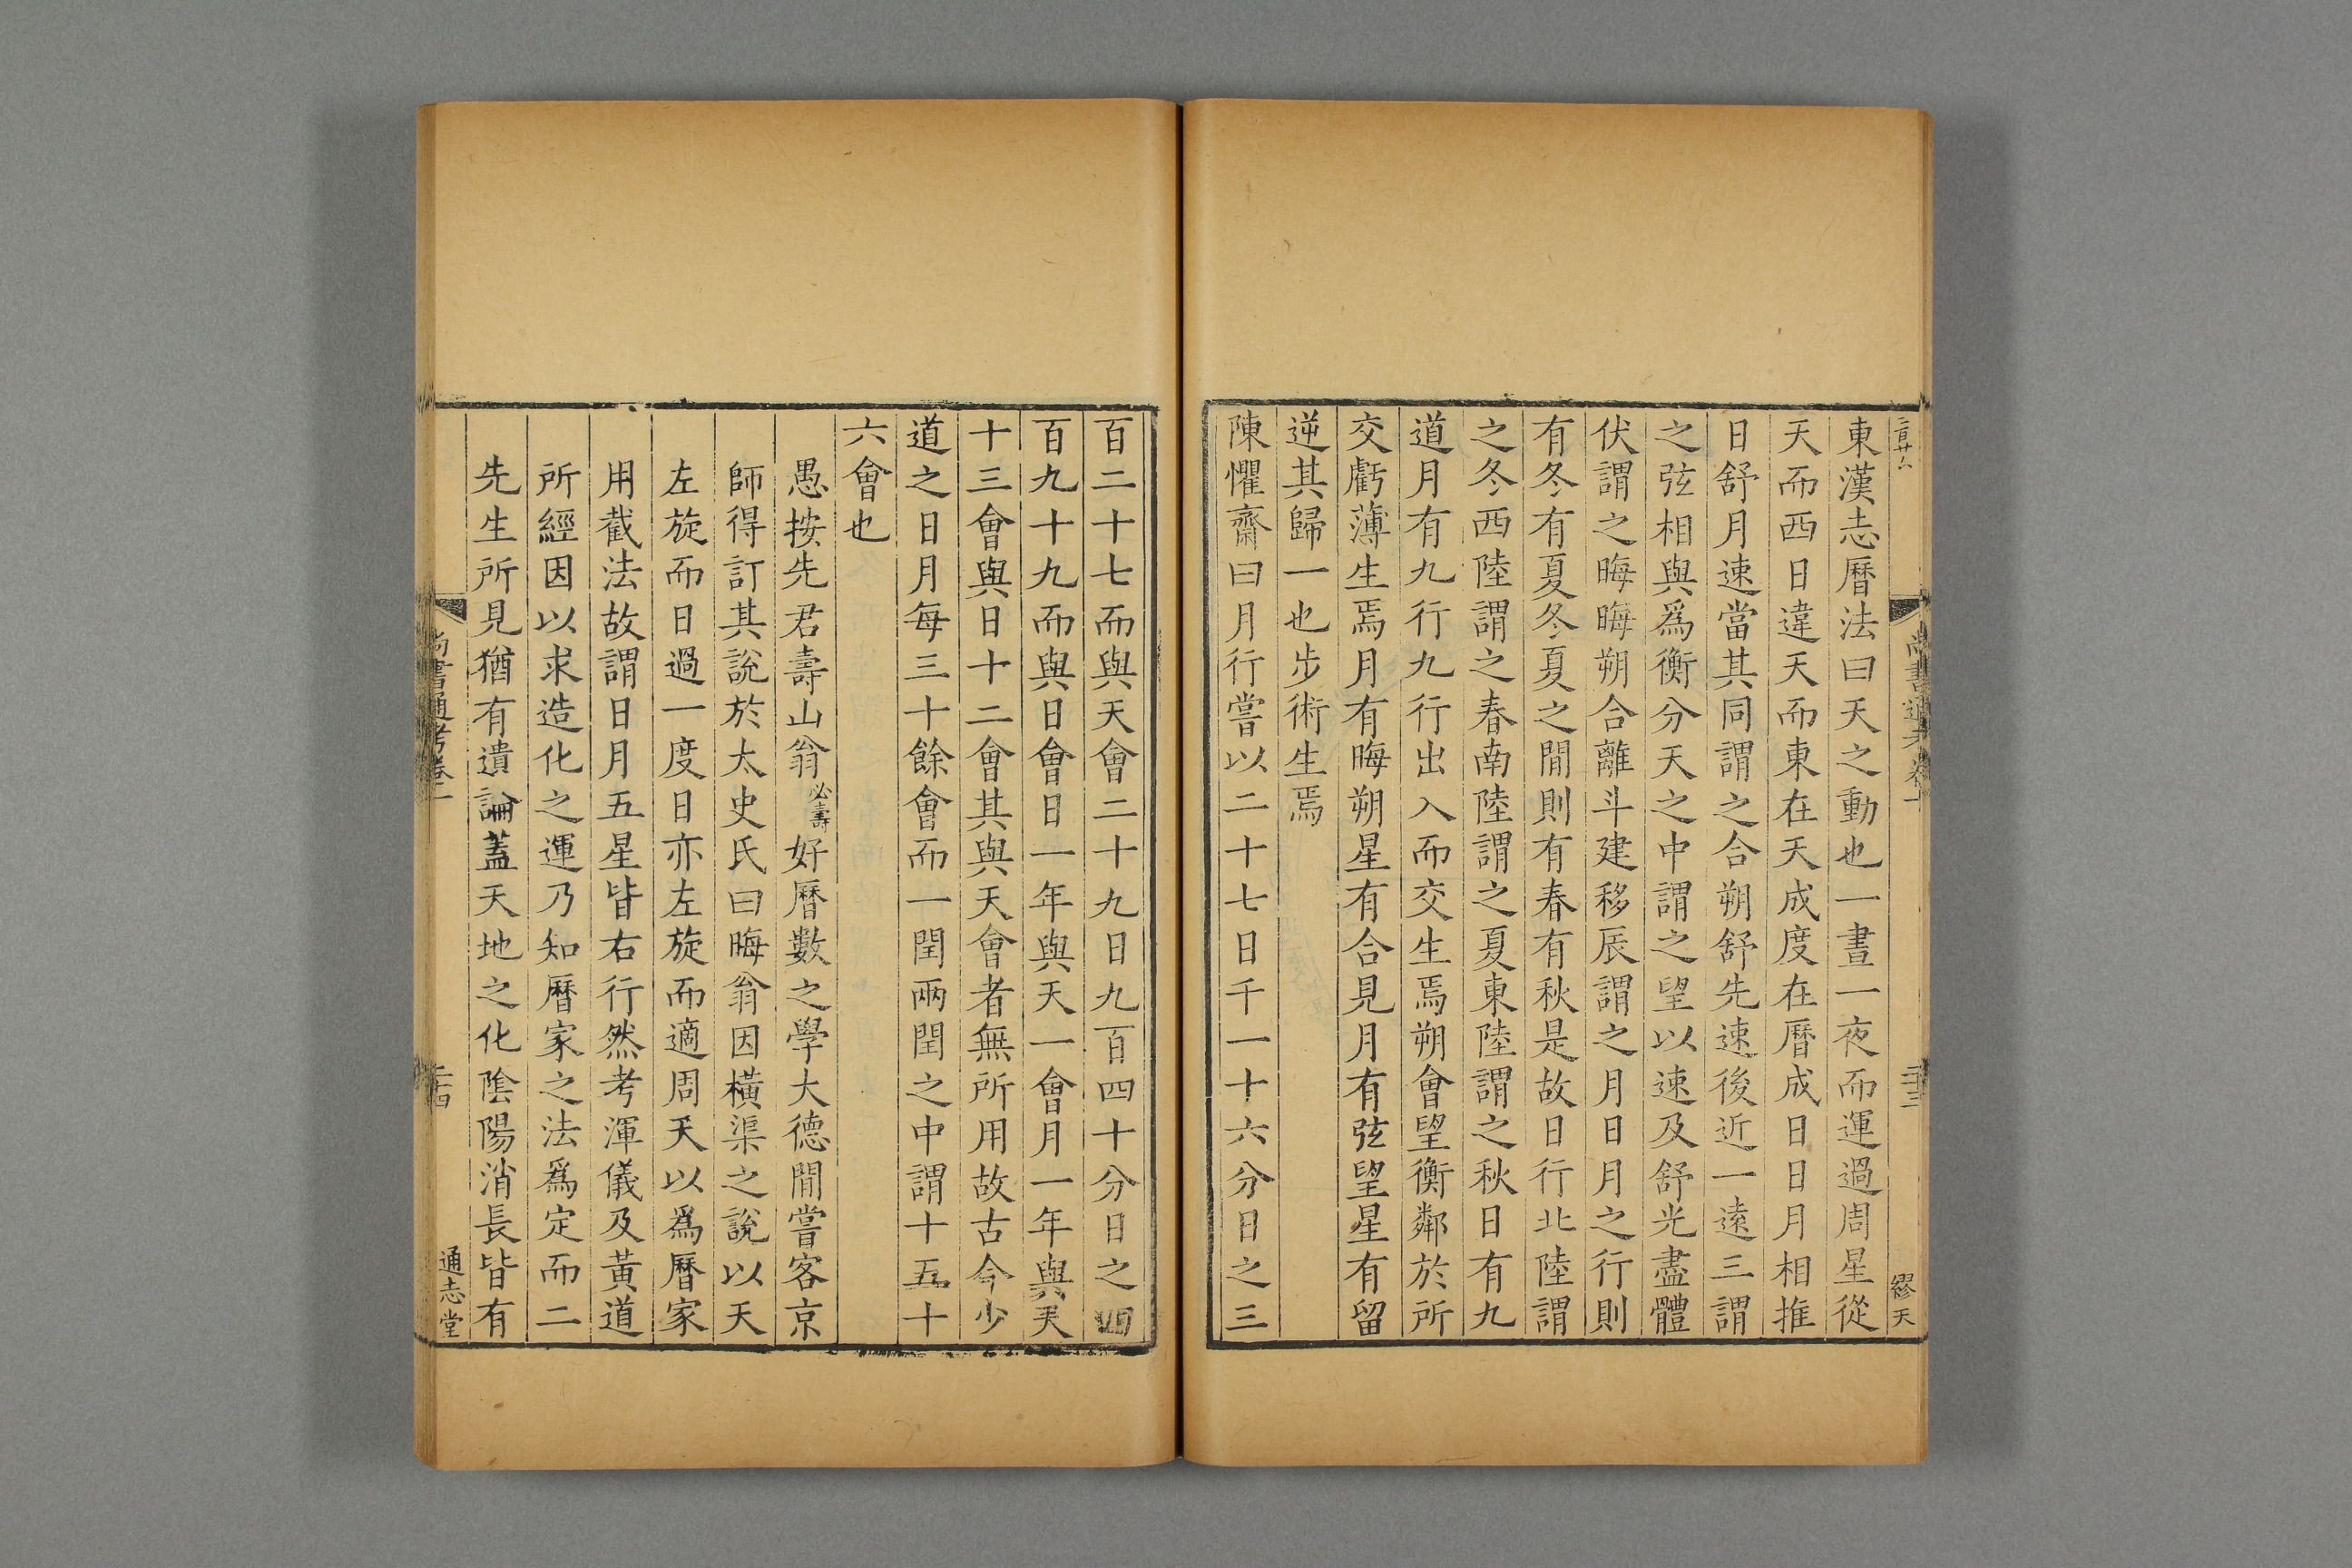 三百廿六
尚書通考卷一
二十三
鄝天
東漢志曆法曰天之動也一晝一夜而運過周星從
天而西日違天而東在天成度在曆成日日月相推
日舒月速當其同謂之合朔舒先速後近一遠三謂
之弦相與爲衡分天之中謂之望以速及舒光盡體
伏謂之晦晦朔合離斗建移辰謂之月日月之行則
有冬有夏冬夏之閒則有春有秋是故日行北陸謂
之冬西陸謂之春南陸謂之夏東陸謂之秋日有九
道月有九行九行出入而交生焉朔會望衡鄰於所
交虧薄生焉月有晦朔星有合見月有弦望星有留
逆其歸一也步術生焉
陳懼齋曰月行嘗以二十七日千一十六分日之三
百二十七而與天會二十九日九百四十分日之四
百九十九而與日會日一年與天一會月一年與天
十三會與日十二會其與天會者無所用故古今少
道之日月每三十餘會而一閏兩閏之中謂十五十
六會也
愚按先君壽山翁必壽好曆數之學大德閒嘗客京
師得訂其說於太史氏曰晦翁因橫渠之說以天
左旋而日過一度日亦左旋而適周天以爲曆家
用截法故謂日月五星皆右行然考渾儀及黃道
所經因以求造化之運乃知曆家之法爲定而二
先生所見猶有遺論蓋天地之化陰陽消長皆有
尚書通考卷一
二十四
通志堂